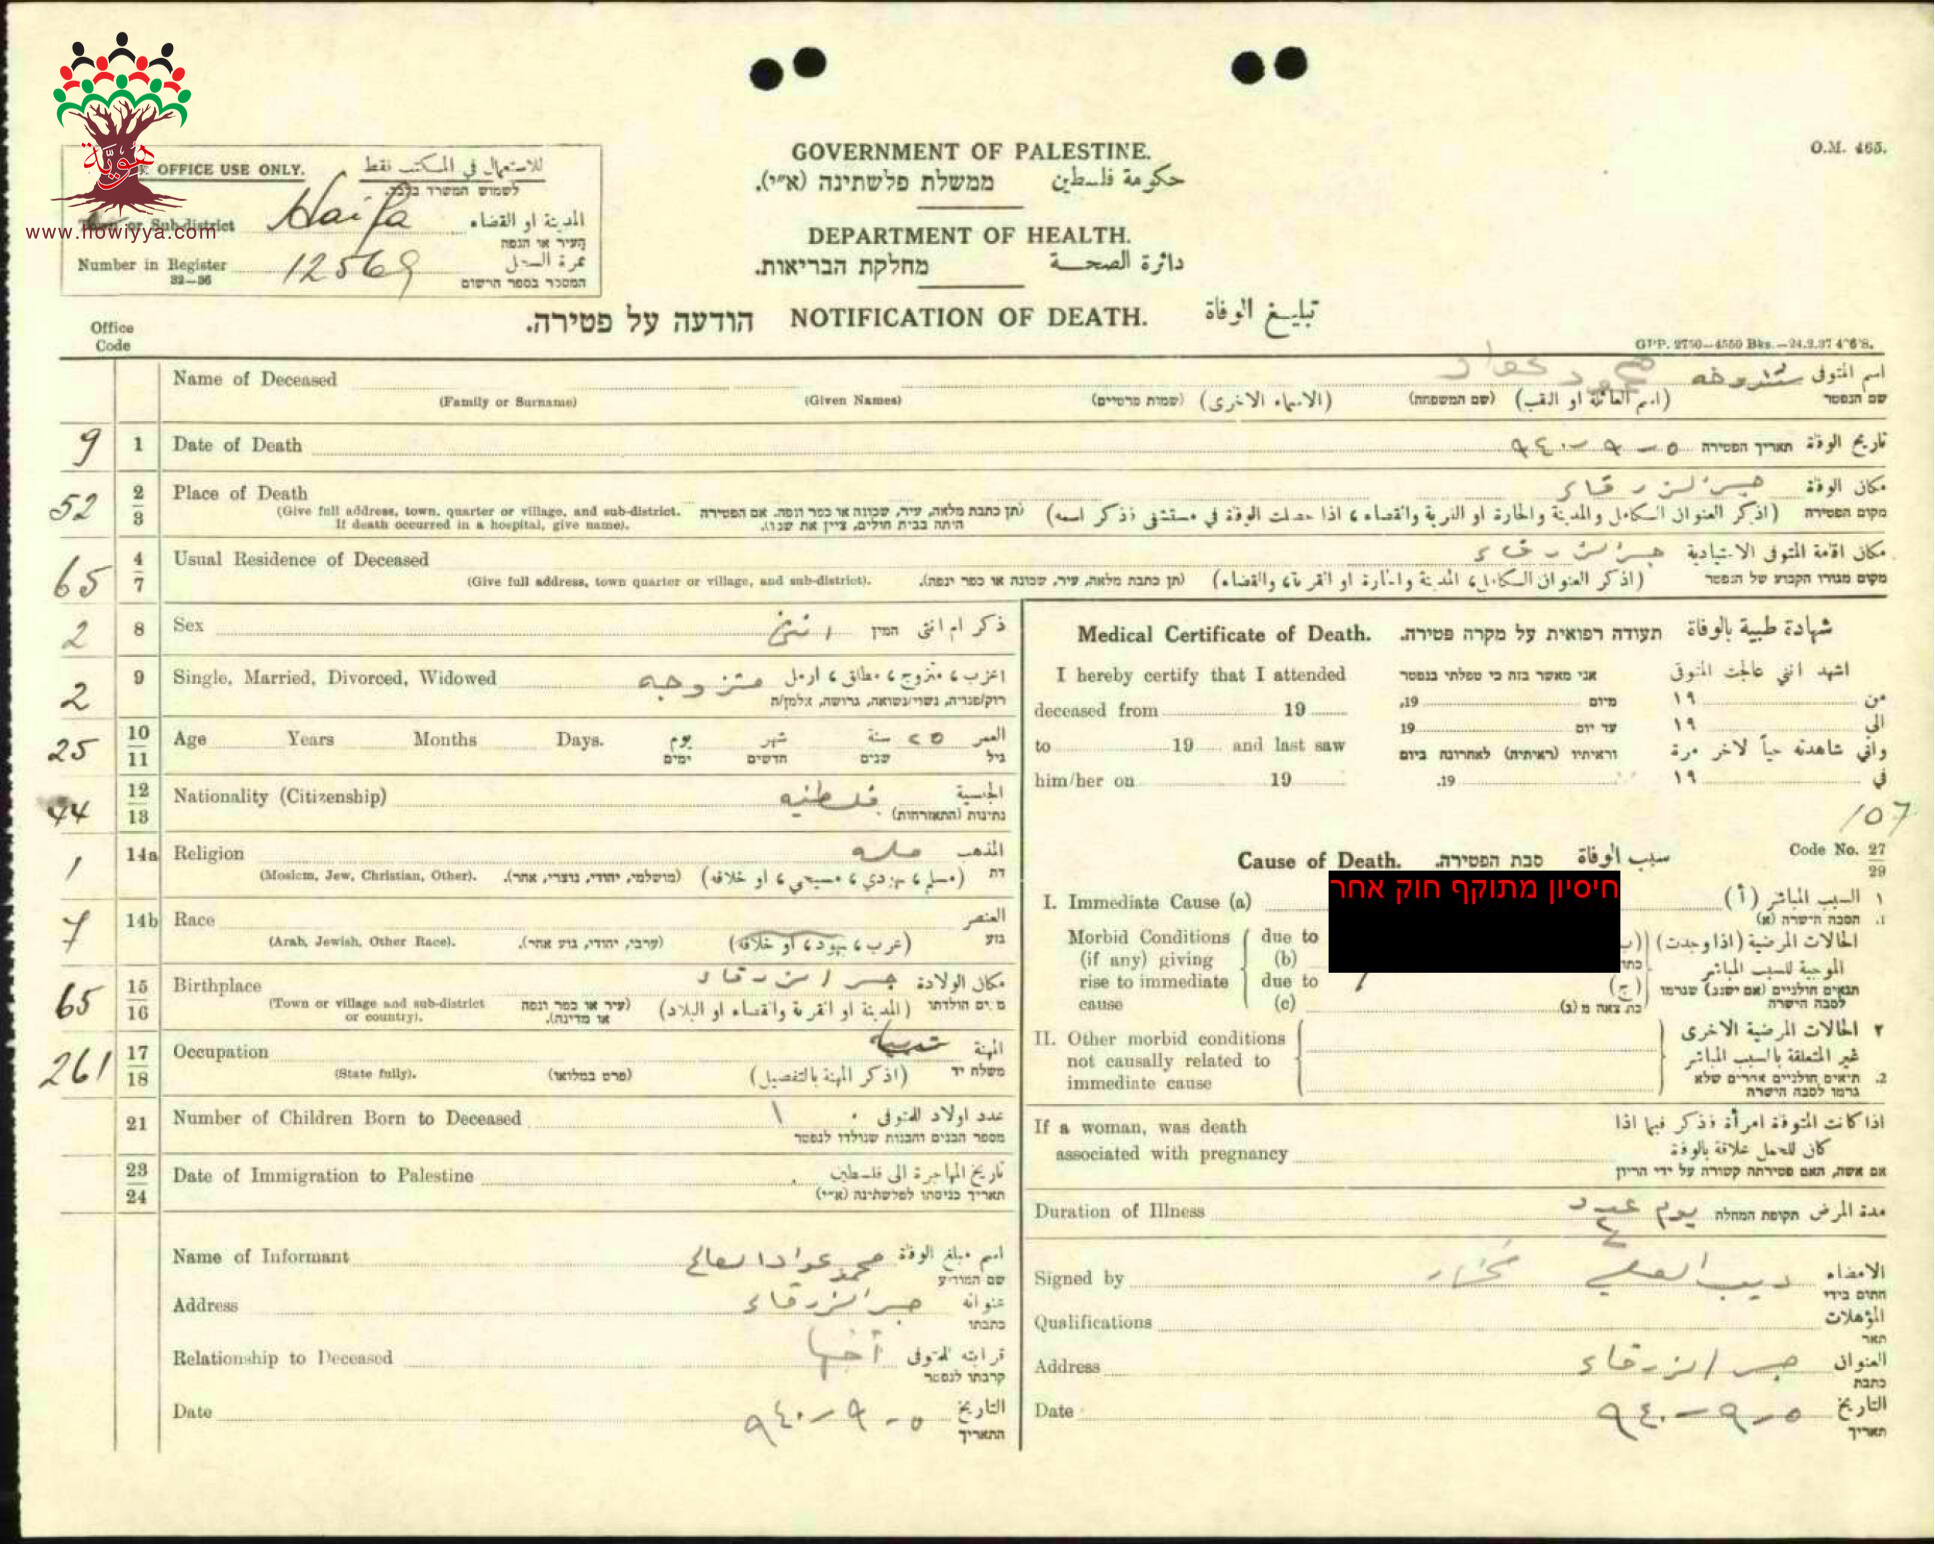 هويّة
www.howiyya.com
OFFICE USE ONLY. للاستعمال في المكتب نقط
לשמוש המשרד בלבד.
Town or Sub-district Haifa المدينة او القضاء
העיר או הנפה
Number in Register 12569 نمرة السجل
32—36 המספר בספר הרשום
GOVERNMENT OF PALESTINE.
ממשלת פלשתינה (א״י). حكومة فلسطين
DEPARTMENT OF HEALTH.
מחלקת הבריאות. دائرة الصحة
הודעה על פטירה. NOTIFICATION OF DEATH. تبليغ الوفاة
O.M. 465.
GPP. 2750—4550 Bks.—24.2.37
Office
Code
Name of Deceased محمود عواد اسم المتوفى
(Family or Surname) (Given Names) (שמות פרטיים) (الاسماء الاخرى) (שם המשפחה) (اسم العائلة او اللقب) שם הנפטר
9 1 Date of Death ٥-٩-٩٤٠ תאריך הפטירה تاريخ الوفاة
52 2 3 Place of Death جسر الزرقاء مكان الوفاة
(Give full address, town, quarter or village, and sub-district. If death occurred in a hospital, give name). (תן כתבת מלאה, עיר, שכונה או כפר ונפה. אם הפטירה היתה בבית חולים, ציין את שמו). (اذكر العنوان الكامل والمدينة والحارة او القرية والقضاء ، اذا حصلت الوفاة في مستشفى فذكر اسمه) מקום הפטירה
65 4 7 Usual Residence of Deceased جسر الزرقاء مكان اقامة المتوفى الاعتيادية
(Give full address, town quarter or village, and sub-district). (תן כתבת מלאה, עיר, שכונה או כפר ונפה). (اذكر العنوان الكامل، المدينة والحارة او القرية، والقضاء) מקום מגורו הקבוע של הנפטר
2 8 Sex انثى המין ذكر ام انثى
2 9 Single, Married, Divorced, Widowed متزوجه اعزب ، متزوج ، مطلق ، ارمل
רוק/פנויה, נשוי/נשואה, גרוש/ה, אלמן/ה
25 10 11 Age Years Months Days. يوم شهر سنة ٢٥ العمر
ימים חדשים שנים גיל
44 12 13 Nationality (Citizenship) فلسطنيه الجنسية
נתינות (התאזרחות)
1 14a Religion مسلمه المذهب
(Moslem, Jew, Christian, Other). (מושלמי, יהודי, נוצרי, אחר). (مسلم ، يهودي ، مسيحي ، او خلافه) דת
7 14b Race العنصر
(Arab, Jewish, Other Race). (ערבי, יהודי, גזע אחר). (عرب ، يهود ، او خلافه) גזע
65 15 16 Birthplace جسر الزرقاء مكان الولادة
(Town or village and sub-district or country). (עיר או כפר ונפה או מדינה). (المدينة او القرية والقضاء او البلاد) מקום הולדתו
261 17 18 Occupation المهنة
(State fully). (פרט במלואו) (اذكر المهنة بالتفصيل) משלח יד
21 Number of Children Born to Deceased ١ عدد اولاد المتوفى
מספר הבנים והבנות שנולדו לנפטר
23 24 Date of Immigration to Palestine تاريخ المهاجرة الى فلسطين
תאריך כניסתו לפלשתינה (א״י)
Name of Informant محمد عواد العالج اسم مبلغ الوفاة
שם המודיע
Address جسر الزرقاء عنوانه
כתבתו
Relationship to Deceased قرابته للمتوفى
קרבתו לנפטר
Date ٥-٩-٩٤٠ التاريخ
התאריך
Medical Certificate of Death. תעודה רפואית על מקרה פטירה. شهادة طبية بالوفاة
I hereby certify that I attended אני מאשר בזה כי טפלתי בנפטר اشهد انني عالجت المتوفى
deceased from 19 מיום 19, من ١٩
to 19 and last saw עד יום 19 الى ١٩
וראיתיו (ראיתיה) לאחרונה ביום واني شاهدته حياً لاخر مرة
him/her on 19 19. في ١٩
107
Cause of Death. סבת הפטירה. سبب الوفاة Code No. 27 29
חיסיון מתוקף חוק אחר
I. Immediate Cause (a) ١ السبب المباشر (أ)
1. הסבה הישרה (א)
Morbid Conditions due to الحالات المرضية (اذا وجدت)
(if any) giving (b) الموجبة للسبب المباشر
rise to immediate due to (ج) תנאים חולניים (אם ישנם) שגרמו
cause (c) לסבה הישרה
II. Other morbid conditions ٢ الحالات المرضية الاخرى
not causally related to غير المتعلقة بالسبب المباشر
immediate cause 2. תנאים חולניים אחרים שלא
גרמו לסבה הישרה
If a woman, was death اذا كانت المتوفاة امرأة فذكر فيما اذا
associated with pregnancy كان للحمل علاقة بالوفاة
אם אשה, האם פטירתה קשורה על ידי הריון
Duration of Illness يوم عدد ٤ תקופת המחלה مدة المرض
Signed by ديب العلي مختار الامضاء
חתום בידי
Qualifications المؤهلات
תאר
Address جسر الزرقاء العنوان
כתבת
Date ٥-٩-٩٤٠ التاريخ
תאריך